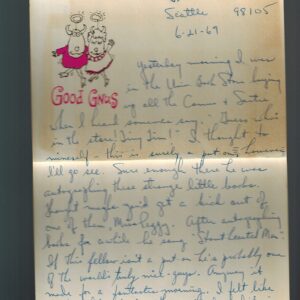 Seattle 98105
6-21-69
Good Gnus
Yesterday morning I was
in the Univ Book Store buying
up all the Camus & Sartre
when I heard someone say - "Guess who's
in the store! Tiny Tim!" I thought to
myself - this is surely a put on, however
I'll go see. Sure enough there he was
autographing these strange little books.
Thought maybe you'd get a kick out of
one of them, Miss Peggy. After autographing
books for awhile he sang "Short Haired Man"
If this fellow isn't a put on he's probably one
of the world's truly nice-guys. Anyway it
made for a fantastic morning. I felt like